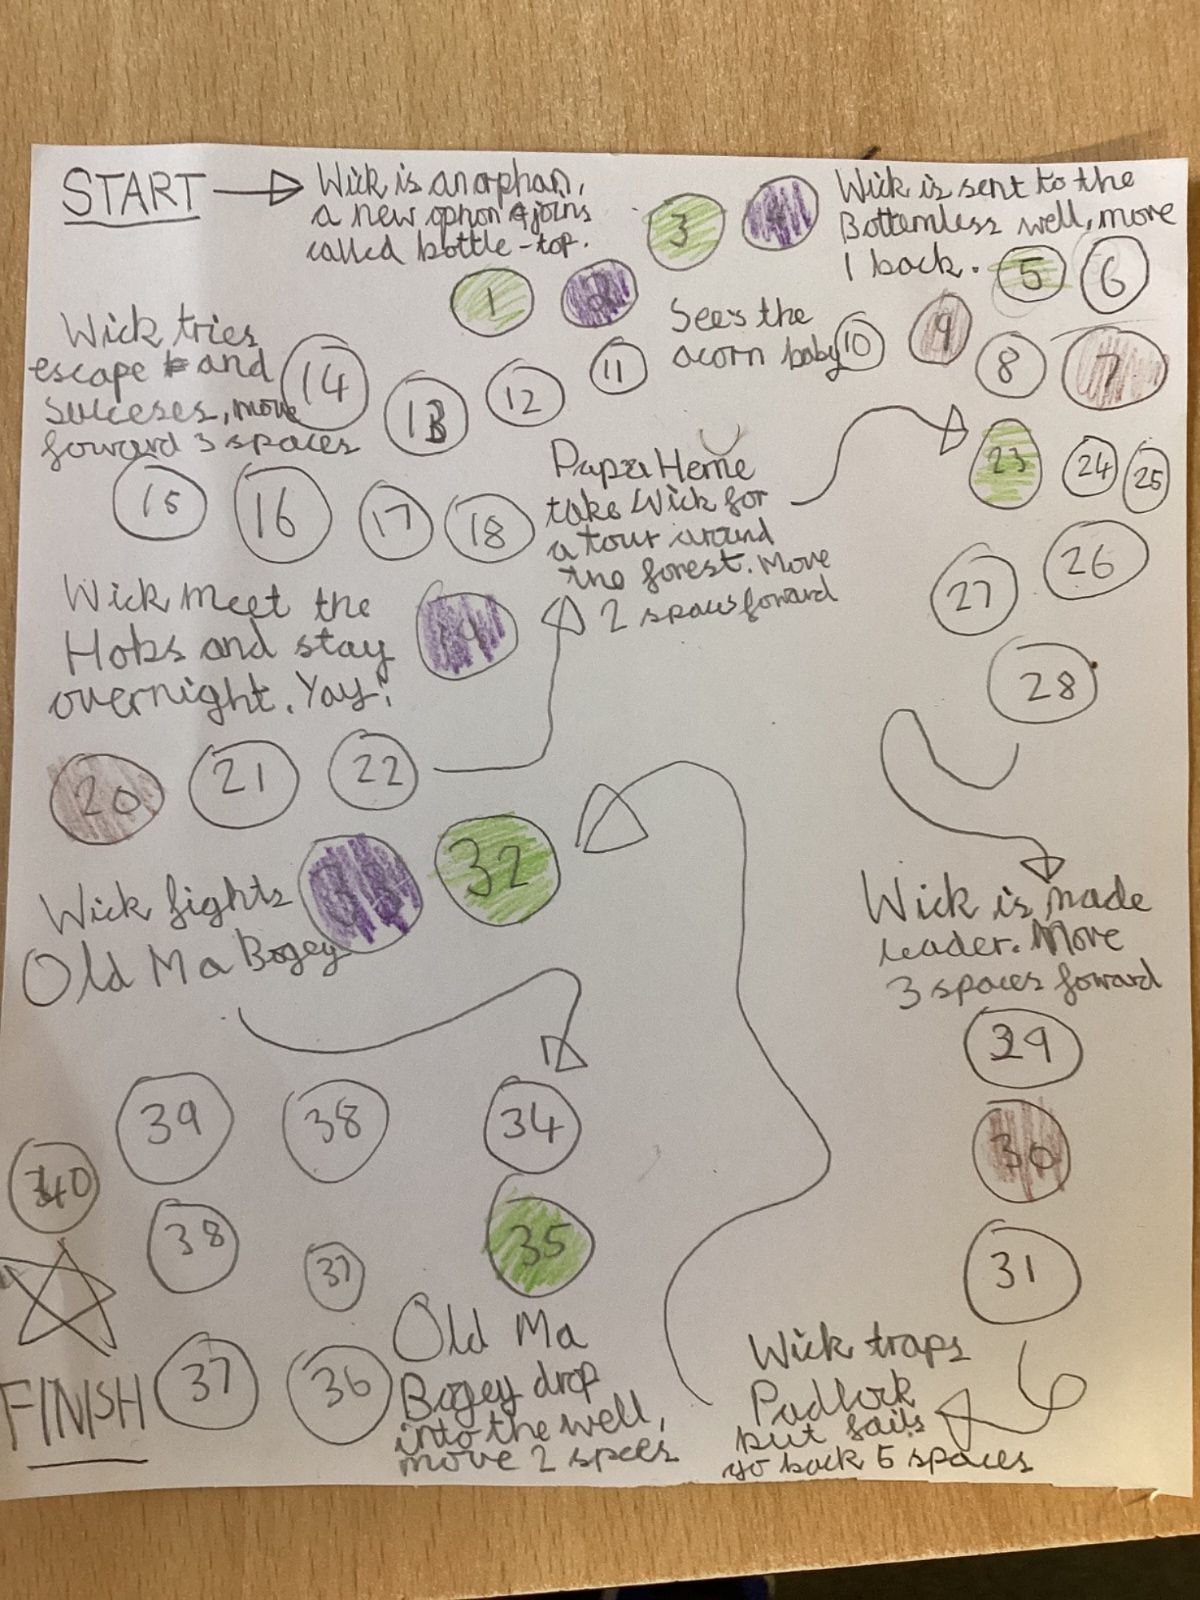 START
Wick is an orphan,
a new ophon & joins
called bottle-top.
1
2
3
4
Wick is sent to the
Bottemless well, move
1 back.
5
6
7
8
9
Sees the
acorn baby
10
11
12
13
14
Wick tries
escape and
succeses, move
foward 3 spaces
15
16
17
18
Wick meet the
Hobs and stay
overnight. Yay!
19
20
21
22
Papa Herne
take Wick for
a tour around
the forest. Move
2 spaces foward
23
24
25
26
27
28
Wick is made
leader. Move
3 spaces foward
29
30
31
Wick traps
Padlock
but fails
go back 5 spaces
32
33
Wick fights
Old Ma Bogey
34
35
Old Ma
Bogey drop
into the well,
move 2 spces
36
37
37
38
38
39
40
FINISH